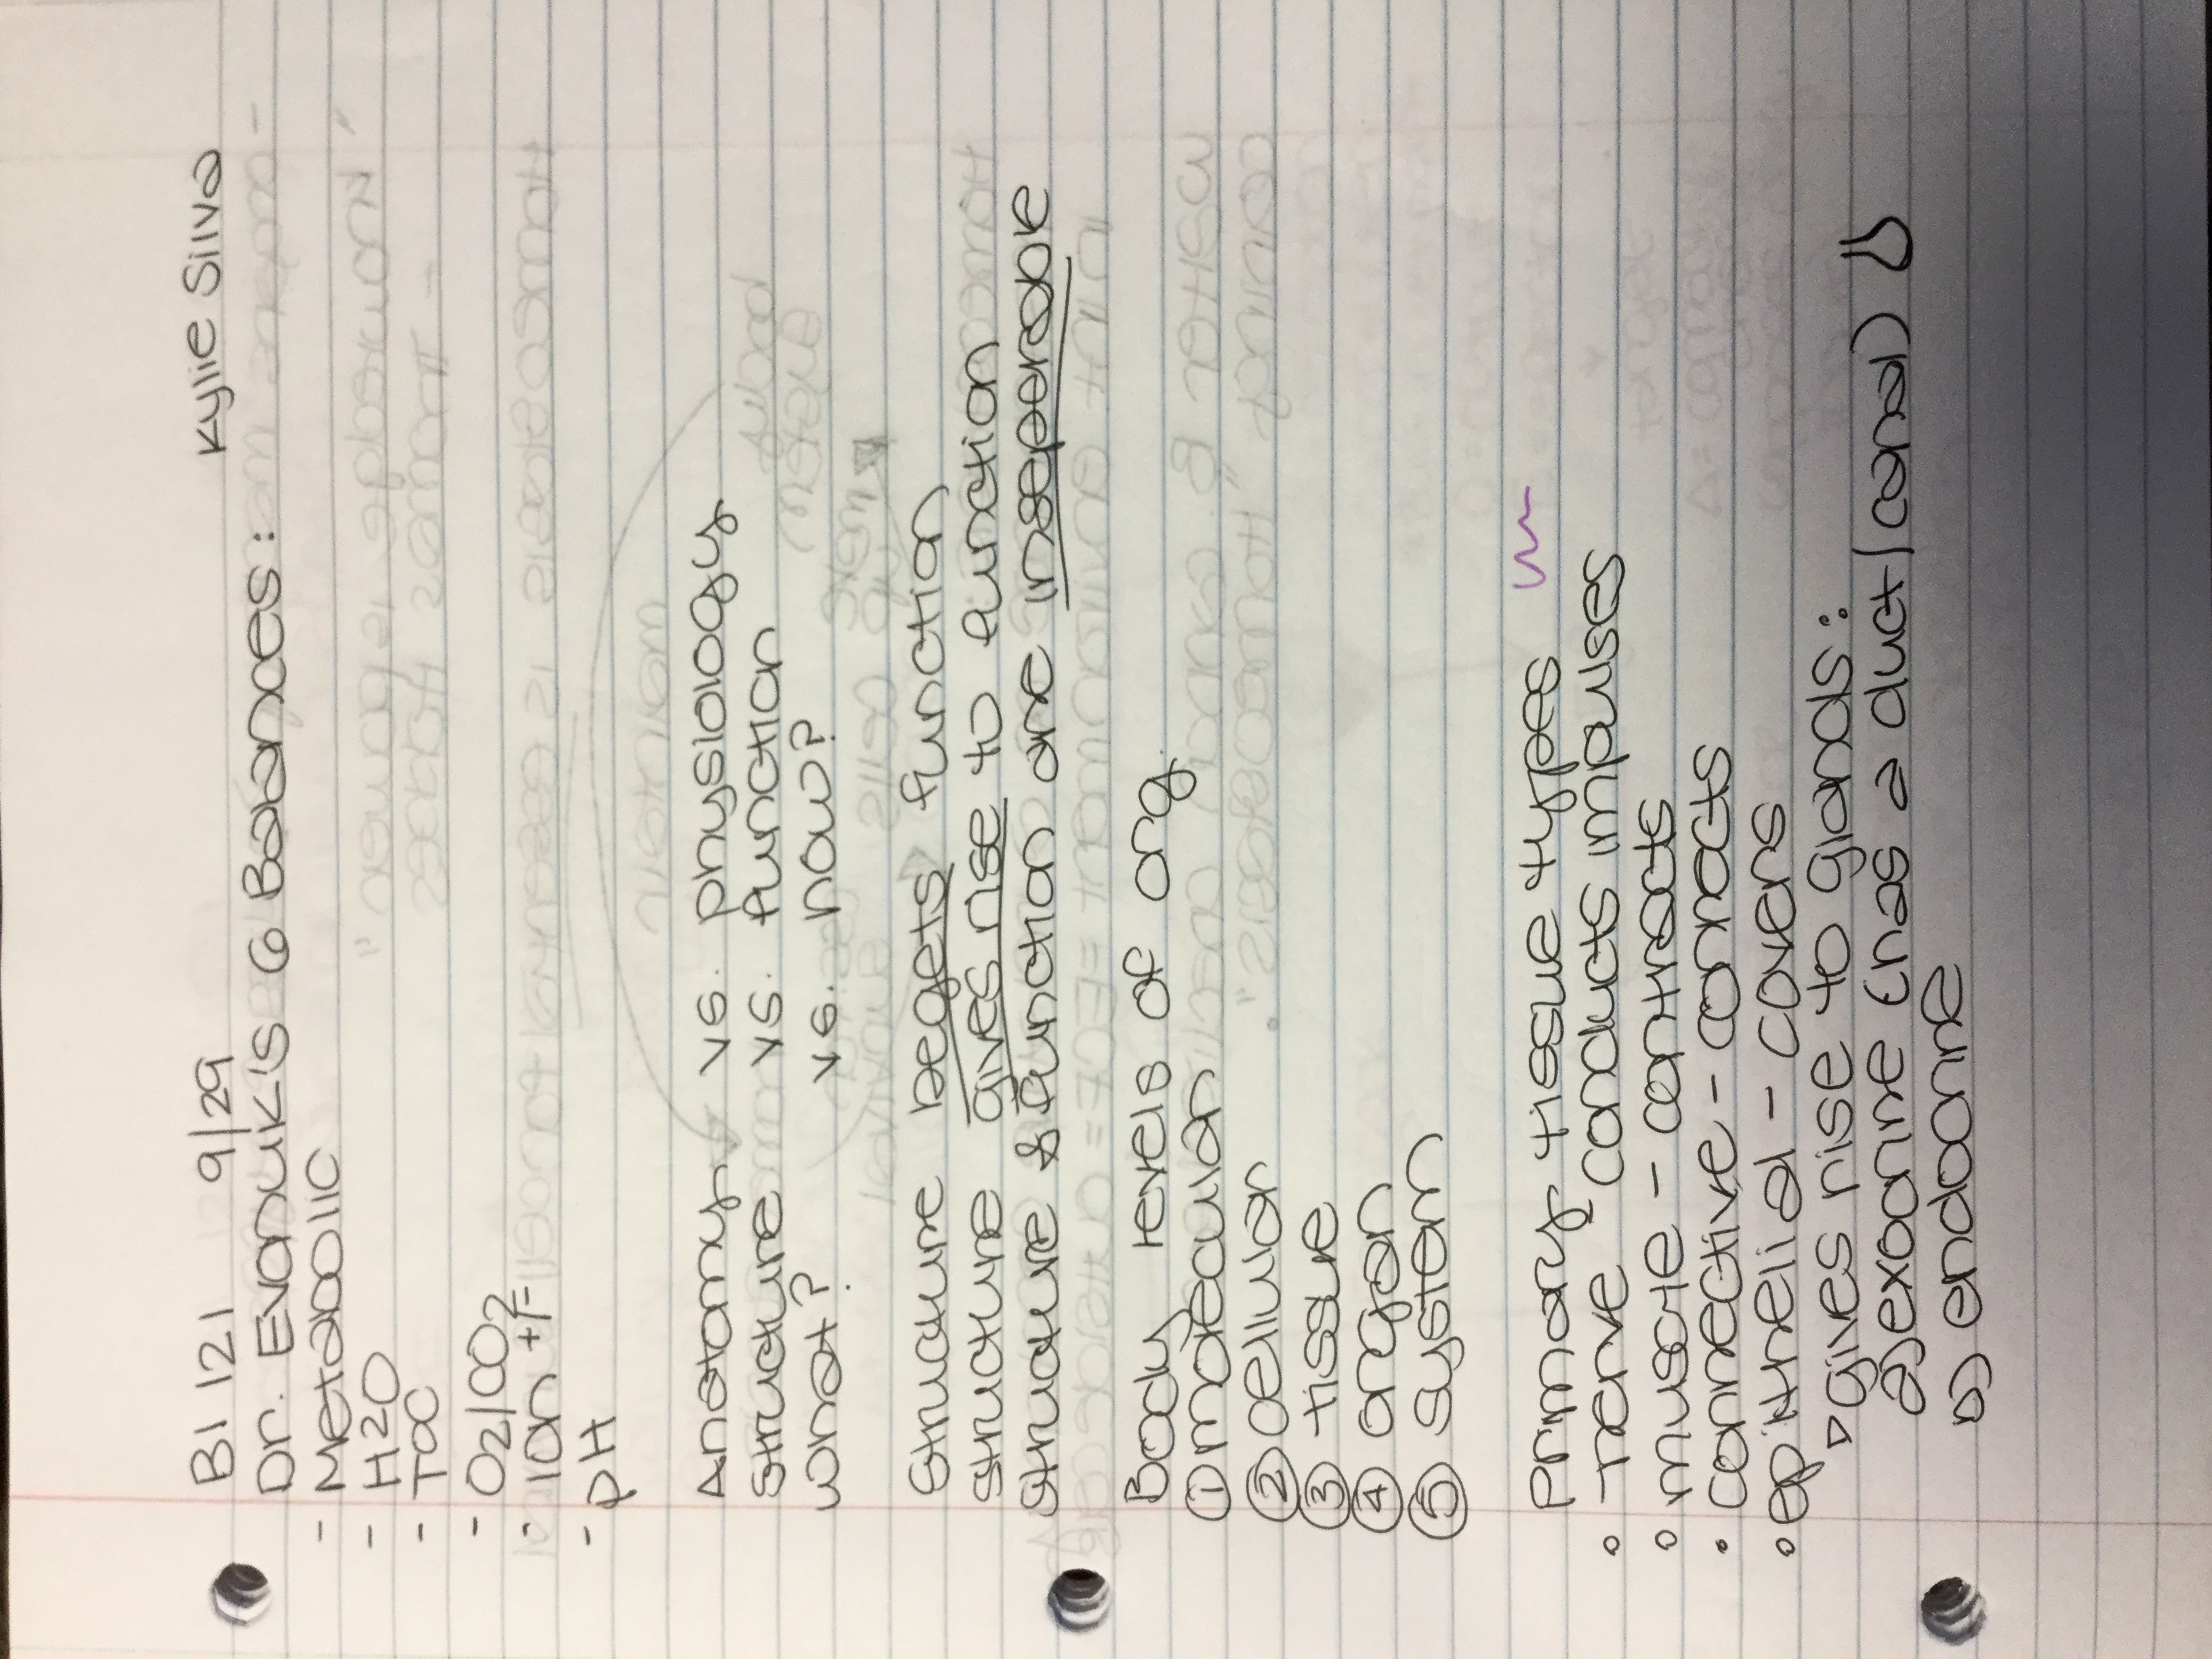 BI 121 9/29 Kylie Silva
Dr. Evonuk's 6 Balances:
- Metabolic
- H2O
- T°C
- O2/CO2
- ion +/-
- pH
Anatomy vs. physiology
structure vs. function
what? vs. how?
structure begets function
structure gives rise to function
structure & function are inseperable
Body levels of org.
① molecular
② cellular
③ tissue
④ organ
⑤ system
Primary tissue types
• nerve conducts impulses
• muscle - contracts
• connective - connects
• epithelial - covers
▷ gives rise to glands:
a) exocrine (has a duct/canal)
b) endocrine